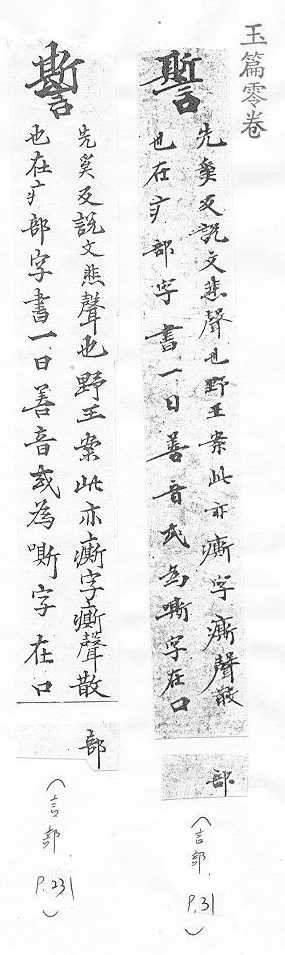 玉篇零卷
誓
先奚反說文悲聲也野王案此亦㾷字㾷聲散
也在疒部字書一曰善音或為嘶字在口
部
(言部
P.31)
謺
先奚反說文悲聲也野王案此亦㾷字㾷聲散
也在疒部字書一曰善音或為嘶字在口
部
(言部
P.231)